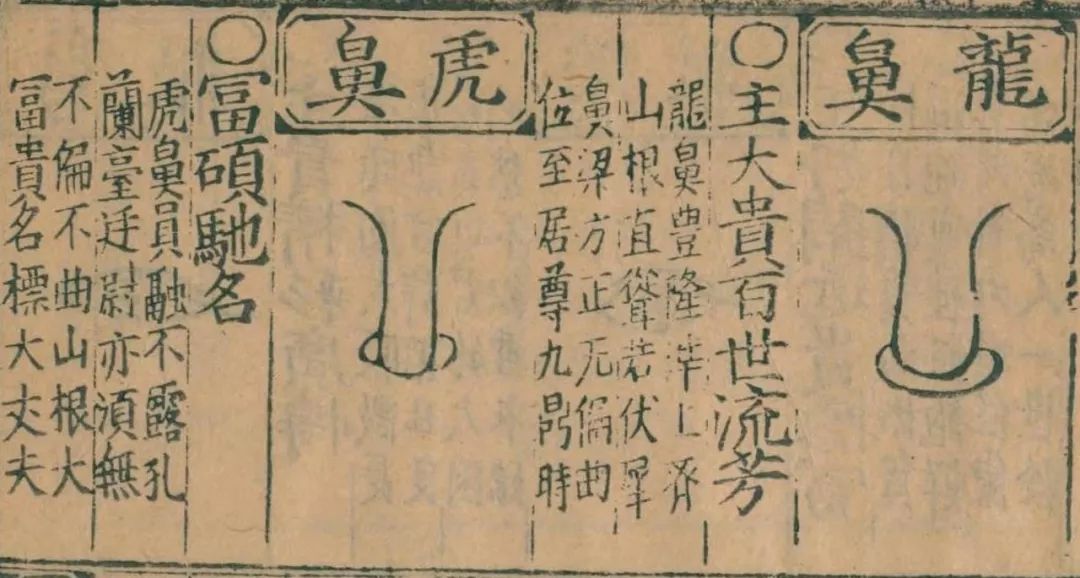 龍鼻
○主大貴百世流芳
龍鼻豊隆凖上齊
山根直聳若伏犀
鼻梁方正无偏曲
位至居尊九鼎時
虎鼻
○冨碩馳名
虎鼻員融不露孔
蘭臺廷尉亦須無
不偏不曲山根大
冨貴名標大丈夫